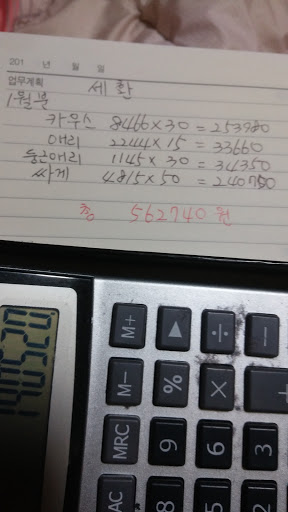 201 년 월 일
업무계획 세환
1월분
카우스 8466×30 = 253980
애리 2244×15 = 33660
둥근애리 1145×30 = 34350
싸게 4815×50 = 240750
총 562740원
M+ ▲ ÷ −
M− % × +
MRC 9 6 3
AC 8 5 2